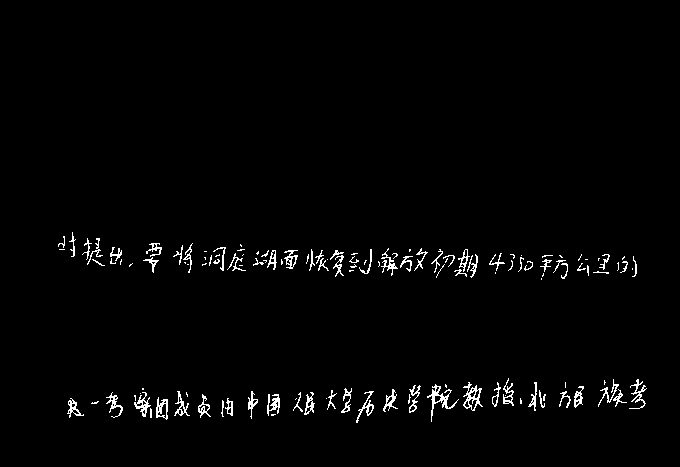 时提出,要将洞庭湖面恢复到解放初期4350平方公里的
这一考察团成员由中国人民大学历史学院教授、北方民族考